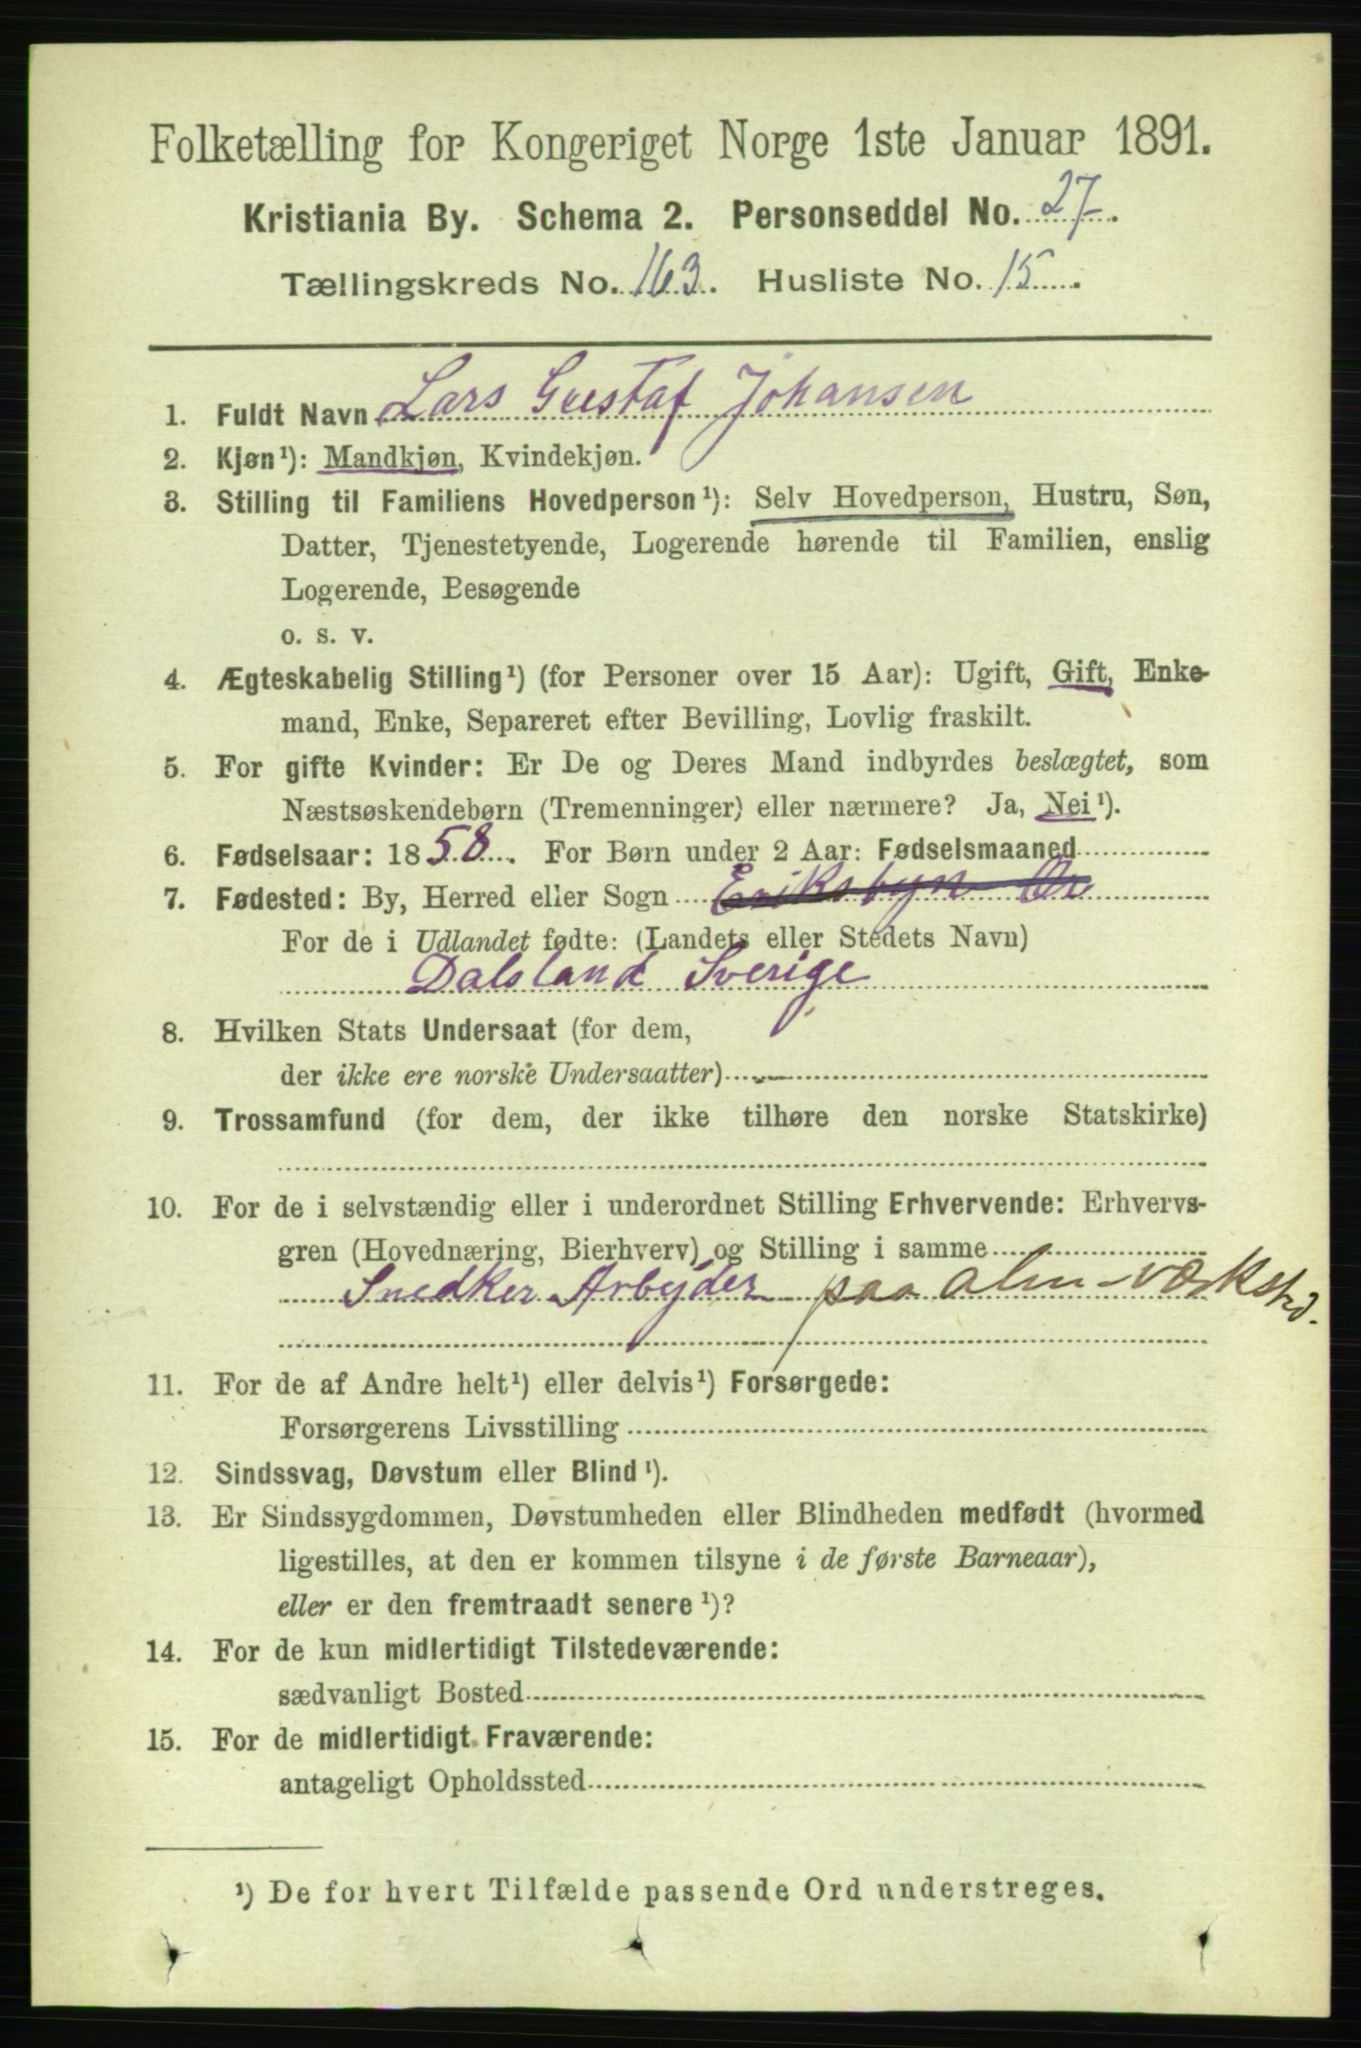 Folketælling for Kongeriget Norge 1ste Januar 1891.
Kristiania By. Schema 2. Personseddel No. 27.
Tællingskreds No. 163. Husliste No. 15.
1. Fuldt Navn Lars Gustaf Johansen
2. Kjøn¹): Mandkjøn, Kvindekjøn.
3. Stilling til Familiens Hovedperson¹): Selv Hovedperson, Hustru, Søn,
Datter, Tjenestetyende, Logerende hørende til Familien, enslig
Logerende, Besøgende
o. s. v.
4. Ægteskabelig Stilling¹) (for Personer over 15 Aar): Ugift, Gift, Enke-
mand, Enke, Separeret efter Bevilling, Lovlig fraskilt.
5. For gifte Kvinder: Er De og Deres Mand indbyrdes beslægtet, som
Næstsøskendebørn (Tremenninger) eller nærmere? Ja, Nei¹).
6. Fødselsaar: 1858. For Børn under 2 Aar: Fødselsmaaned
7. Fødested: By, Herred eller Sogn Eriksbyn Ør
For de i Udlandet fødte: (Landets eller Stedets Navn)
Dalsland Sverige
8. Hvilken Stats Undersaat (for dem,
der ikke ere norske Undersaatter)
9. Trossamfund (for dem, der ikke tilhøre den norske Statskirke)
10. For de i selvstændig eller i underordnet Stilling Erhvervende: Erhvervs-
gren (Hovednæring, Bierhverv) og Stilling i samme
Snedker Arbejder paa alm-værksted.
11. For de af Andre helt¹) eller delvis¹) Forsørgede:
Forsørgerens Livsstilling
12. Sindssvag, Døvstum eller Blind¹).
13. Er Sindssygdommen, Døvstumheden eller Blindheden medfødt (hvormed
ligestilles, at den er kommen tilsyne i de første Barneaar),
eller er den fremtraadt senere¹)?
14. For de kun midlertidigt Tilstedeværende:
sædvanligt Bosted
15. For de midlertidigt Fraværende:
antageligt Opholdssted
¹) De for hvert Tilfælde passende Ord understreges.